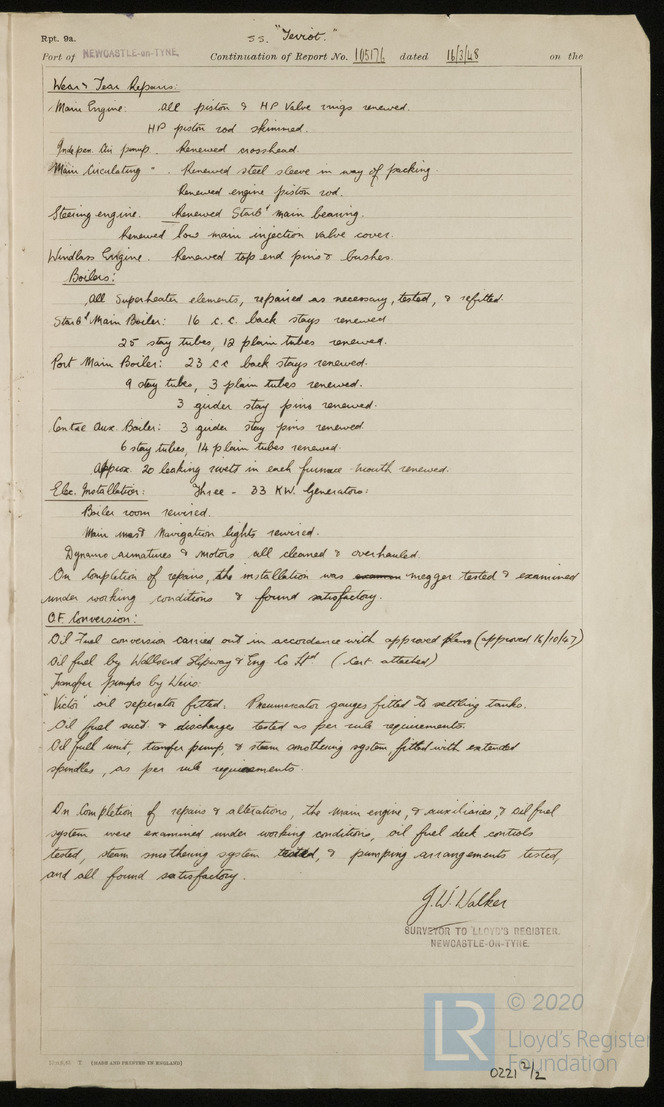 Rpt. 9a.
S.S. "Teviot."
Port of NEWCASTLE-on-TYNE. Continuation of Report No. 105176 dated 16/3/48 on the
Wear & Tear Repairs:
Main Engine. All piston & HP Valve rings renewed.
HP piston rod skimmed.
Indepen. Air pump. Renewed crosshead.
Main Circulating " . Renewed steel sleeve in way of packing.
Renewed engine piston rod.
Steering engine. Renewed Starbd main bearing.
Renewed low main injection valve cover.
Windlass Engine. Renewed top end pins & bushes.
Boilers:
All Superheater elements, repaired as necessary, tested, & refitted.
Starbd Main Boiler: 16 c.c. back stays renewed
25 stay tubes, 12 plain tubes renewed.
Port Main Boiler: 23 cc back stays renewed.
9 stay tubes, 3 plain tubes renewed.
3 girder stay pins renewed.
Centre Aux. Boiler: 3 girder stay pins renewed.
6 stay tubes, 14 plain tubes renewed.
Approx. 20 leaking rivets in each furnace mouth renewed.
Elec. Installation: Three - 33 KW. Generators:
Boiler room rewired.
Main mast Navigation lights rewired.
Dynamo armatures & motors all cleaned & overhauled.
On completion of repairs, the installation was megger tested & examined
under working conditions & found satisfactory.
O.F. Conversion:
Oil Fuel conversion carried out in accordance with approved plans (approved 16/10/47)
Oil fuel by Wallsend Slipway & Eng Co Ltd (Cert attached)
Transfer pumps by Weirs:
"Victor" oil seperator fitted. Pneumercator gauges fitted to settling tanks.
Oil fuel suct. & discharges tested as per rule requirements.
Oil fuel unit, transfer pump, & steam smothering system, fitted with extended
spindles, as per rule requirements.
On completion of repairs & alterations, the main engine, & auxiliaries, & oil fuel
system were examined under working conditions, oil fuel deck controls
tested, steam smothering system tested, & pumping arrangements tested,
and all found satisfactory.
J.W. Walker
SURVEYOR TO LLOYD'S REGISTER.
NEWCASTLE-ON-TYNE.
(MADE AND PRINTED IN ENGLAND)
LR
© 2020
Lloyd's Register
Foundation
0221 2/2